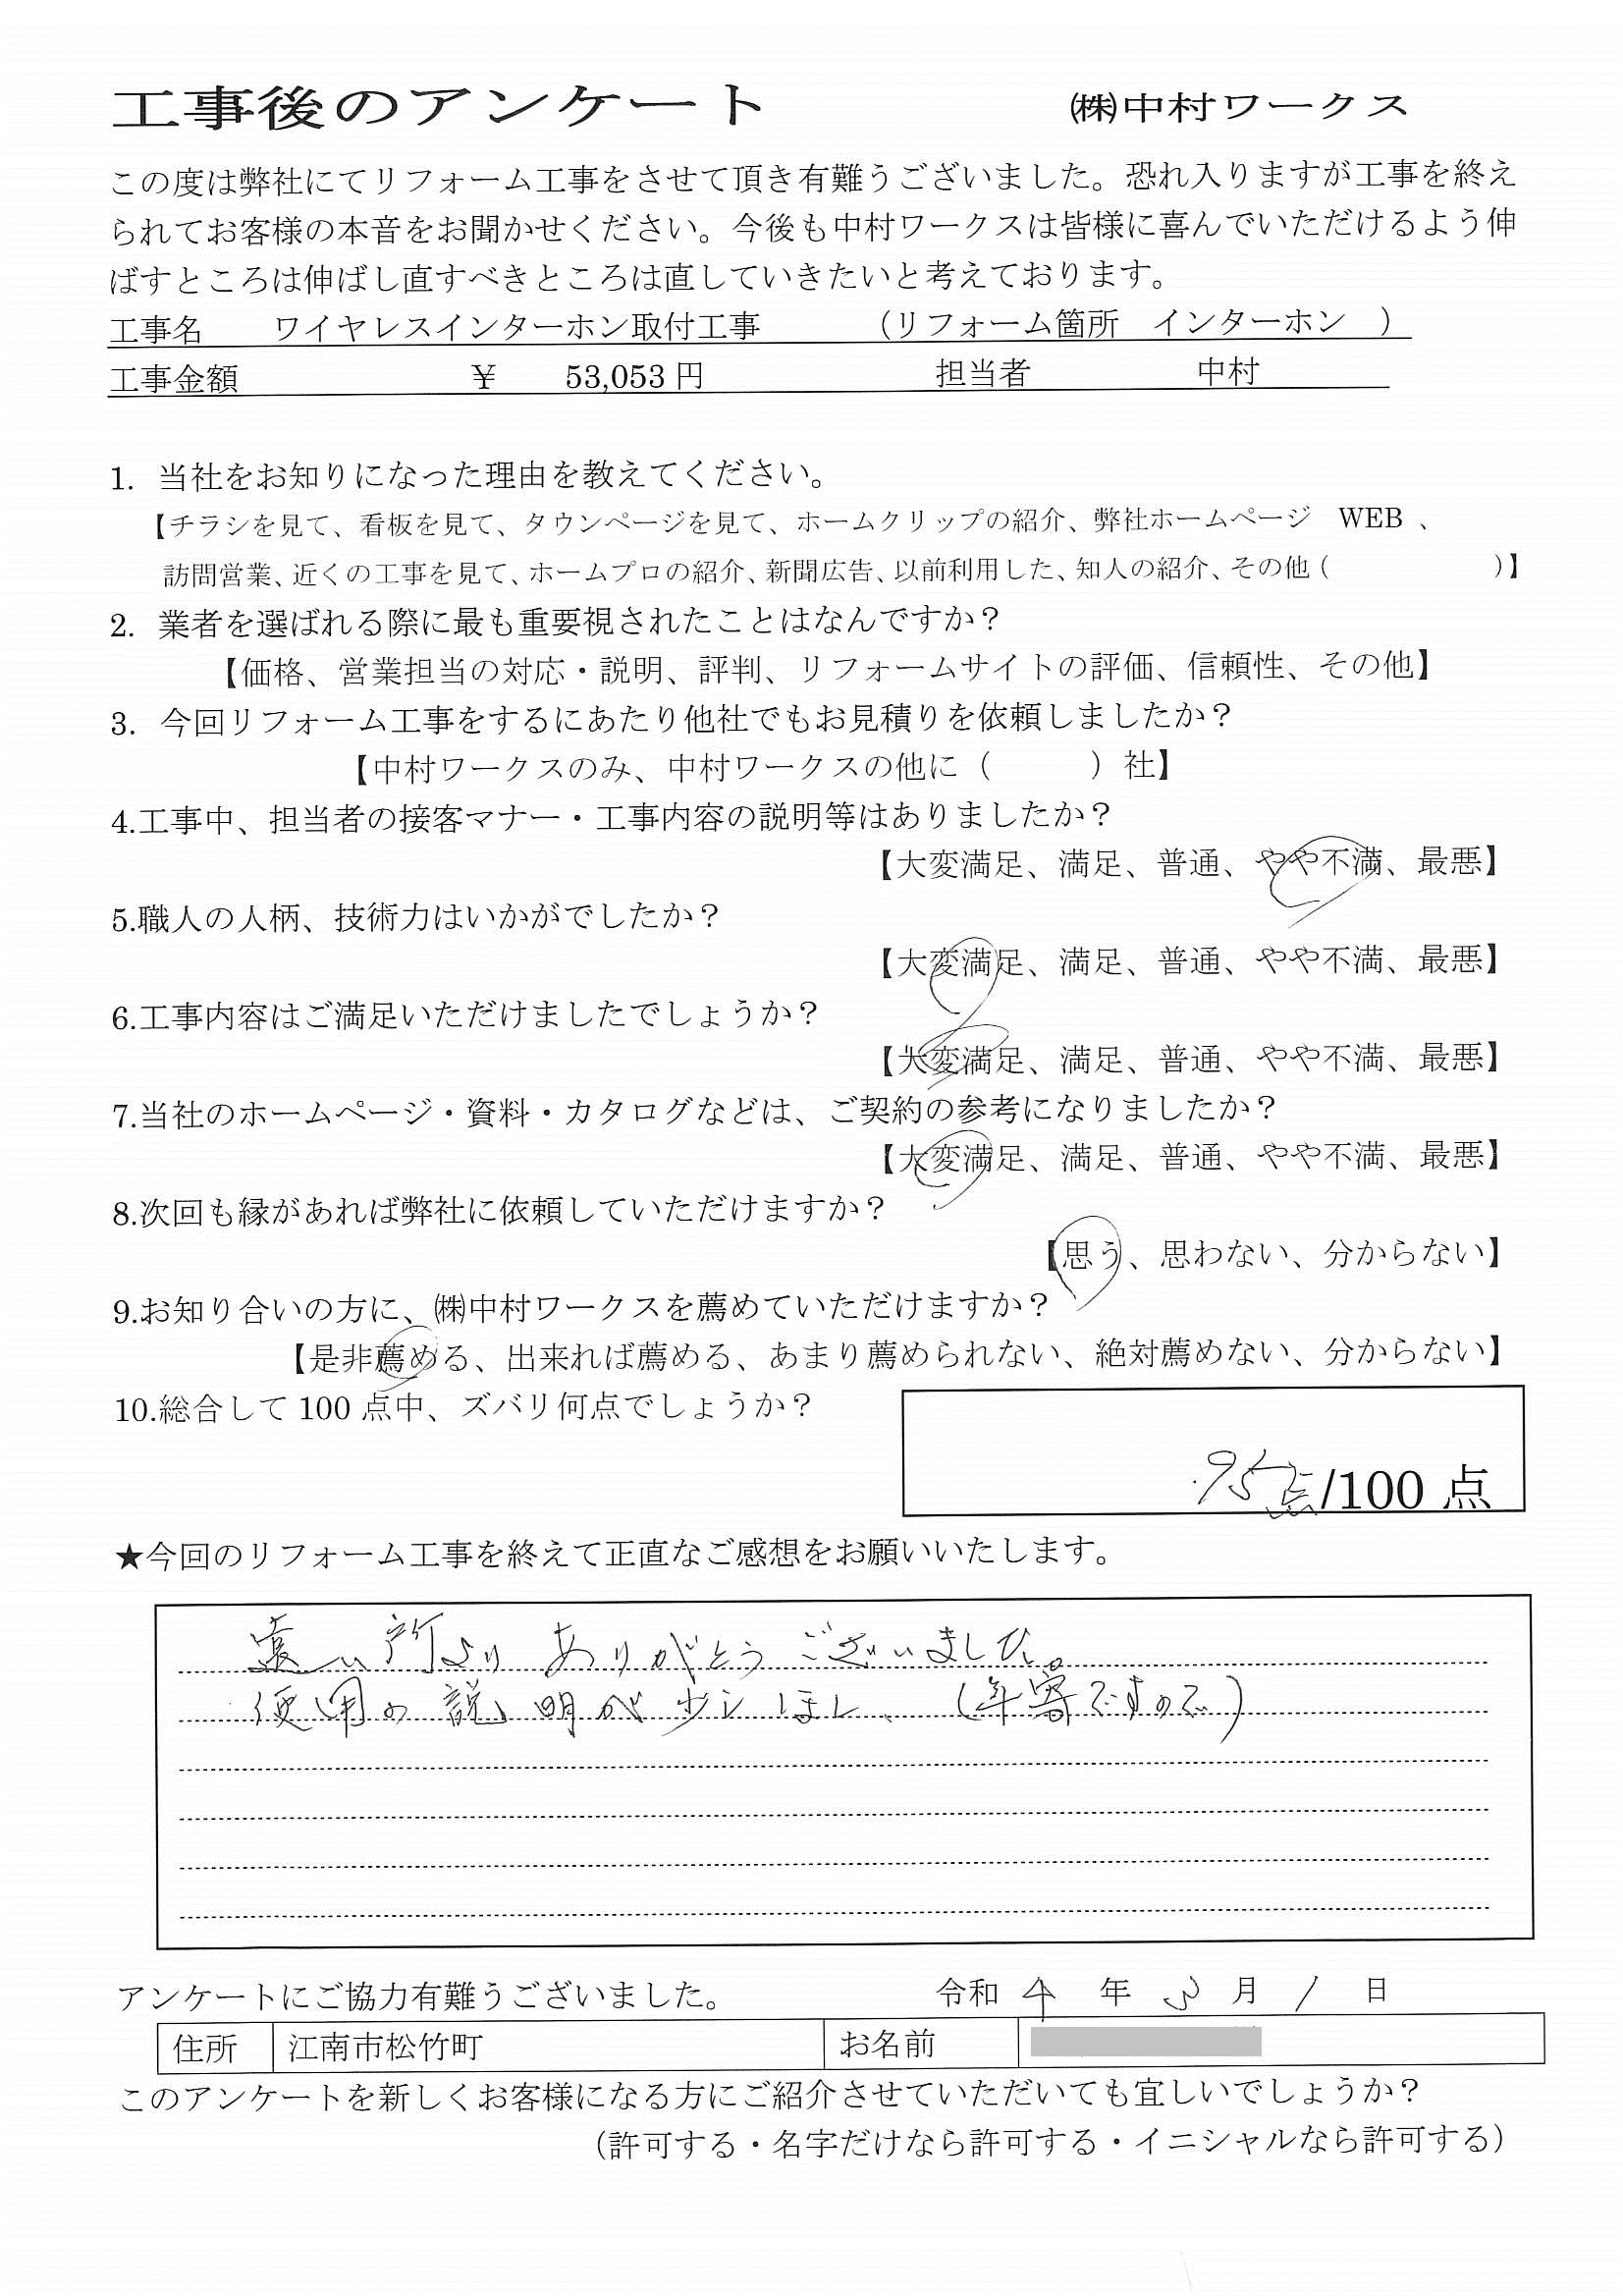 工事後のアンケート ㈱中村ワークス
この度は弊社にてリフォーム工事をさせて頂き有難うございました。恐れ入りますが工事を終え
られてお客様の本音をお聞かせください。今後も中村ワークスは皆様に喜んでいただけるよう伸
ばすところは伸ばし直すべきところは直していきたいと考えております。
工事名 ワイヤレスインターホン取付工事 （リフォーム箇所 インターホン ）
工事金額 ￥ 53,053 円 担当者 中村
1. 当社をお知りになった理由を教えてください。
【チラシを見て、看板を見て、タウンページを見て、ホームクリップの紹介、弊社ホームページ WEB 、
訪問営業、近くの工事を見て、ホームプロの紹介、新聞広告、以前利用した、知人の紹介、その他（ ）】
2. 業者を選ばれる際に最も重要視されたことはなんですか？
【価格、営業担当の対応・説明、評判、リフォームサイトの評価、信頼性、その他】
3. 今回リフォーム工事をするにあたり他社でもお見積りを依頼しましたか？
【中村ワークスのみ、中村ワークスの他に（ ）社】
4.工事中、担当者の接客マナー・工事内容の説明等はありましたか？
【大変満足、満足、普通、やや不満、最悪】
5.職人の人柄、技術力はいかがでしたか？
【大変満足、満足、普通、やや不満、最悪】
6.工事内容はご満足いただけましたでしょうか？
【大変満足、満足、普通、やや不満、最悪】
7.当社のホームページ・資料・カタログなどは、ご契約の参考になりましたか？
【大変満足、満足、普通、やや不満、最悪】
8.次回も縁があれば弊社に依頼していただけますか？
【思う、思わない、分からない】
9.お知り合いの方に、㈱中村ワークスを薦めていただけますか？
【是非薦める、出来れば薦める、あまり薦められない、絶対薦めない、分からない】
10.総合して 100 点中、ズバリ何点でしょうか？
95点/100 点
★今回のリフォーム工事を終えて正直なご感想をお願いいたします。
遠い所より ありがとうございました。
使用の説明が少しほしい、（年寄ですので）
アンケートにご協力有難うございました。 令和 4 年 3 月 1 日
住所 江南市松竹町 お名前
このアンケートを新しくお客様になる方にご紹介させていただいても宜しいでしょうか？
（許可する・名字だけなら許可する・イニシャルなら許可する）